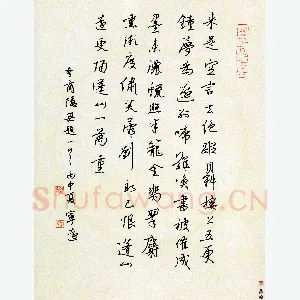 來是空言去絕踪月斜樓上五更
鍾夢為遠別啼難喚書被催成
墨未濃蠟照半籠金翡翠麝
熏微度繡芙蓉劉郎已恨蓬山
遠更隔蓬山一萬重
李商隱無題一首丙申夏寧
Shufawang.cn